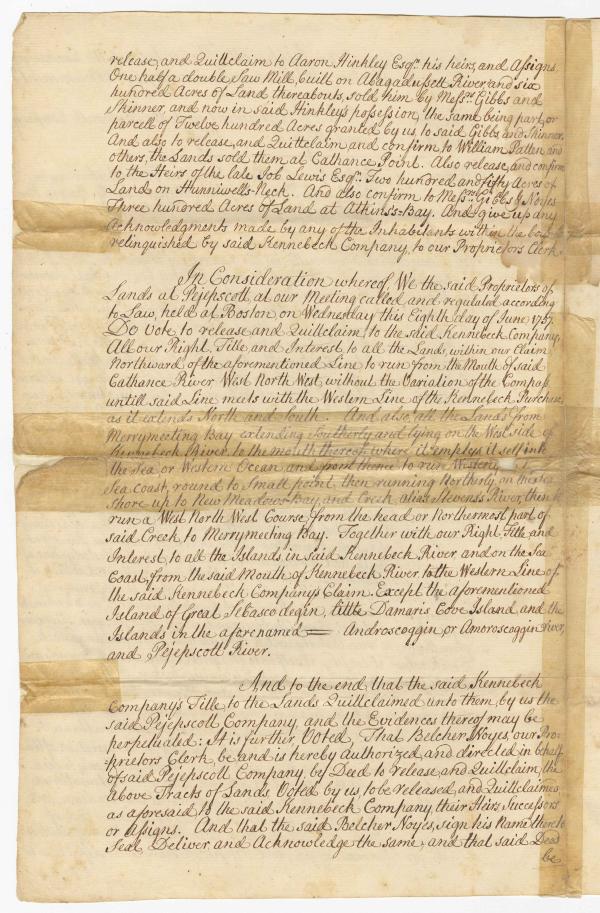 release, and Quittclaim to Aaron Hinkley Esqr. his heirs, and Assigns
One half a double Saw Mill, built on Abagadussett River, and six
hundred Acres of Land thereabouts, sold him by Messrs. Gibbs and
Skinner, and now in said Hinkley's possession, the same being part, or
parcell of Twelve hundred Acres granted by us, to said Gibbs and Skinner.
And also to release, and Quittclaim and confirm to William Patten and
others, the Lands sold them at Cathance Point. Also release, and confirm
to the Heirs of the late Job Lewis Esqr. Two hundred and fifty Acres of
Land on Hunniwells-Neck. And also confirm to Messrs. Gibbs & Noyes
Three hundred Acres of Land at Atkins's-Bay. And give up any
Acknowledgments made by any of the Inhabitants within the
relinquished by said Kennebeck Company, to our Proprietors Clerk.
In Consideration whereof, We the said Proprietors of
Lands at Pejepscott, at our Meeting called and regulated according
to Law, held at Boston on Wednesday this Eighth day of June 1757.
Do Vote to release and Quittclaim, to the said Kennebeck Company,
All our Right, Title, and Interest, to all the Lands, within our Claim
Northward of the aforementioned Line to run from the Mouth of said
Cathance River West North West, without the Variation of the Compass
untill said Line meets with the Western Line of the Kennebeck Purchase
as it extends North and South. And also, all the Lands from
Merrymeeting Bay extending Southerly and lying on the West side of
Kennebeck River, to the mouth thereof, where it emptys it self into
the Sea or Western Ocean and from thence to run Westerly
Sea coast, round to Small point, then running Northerly, on the Sea
shore up to New Meadows-Bay, and Creek, alias Stevens's River, then to
run a West North West Course, from the head or Northermost part of
said Creek to Merrymeeting Bay. Together with our Right, Title, and
Interest, to all the Islands, in said Kennebeck River, and on the Sea
Coast, from the said Mouth of Kennebeck River, to the Western Line of
the said Kennebeck Company's Claim. Except the aforementioned
Island of Great Sebascodegin, little Damaris Cove Island and the
Islands in the aforenamed = Androscoggin, or Amoroscoggin River,
and Pejepscott River.
And to the end, that the said Kennebeck
Company's Title to the Lands Quittclaimed unto them, by us the
said Pejepscott Company, and the Evidences thereof may be
perpetuated: It is further Voted, That Belcher Noyes, our Pro-
prietors Clerk, be and is hereby Authorized, and directed in behalf
of said Pejepscott Company, by Deed to release and Quittclaim, the
above Tracts of Lands Voted by us to be released, and Quittclaimed,
as aforesaid to the said Kennebeck Company, their Heirs, Successors
or Assigns. And that the said Belcher Noyes, sign his Name thereto
Seal, Deliver, and Acknowledge the same, and that said Deed
be